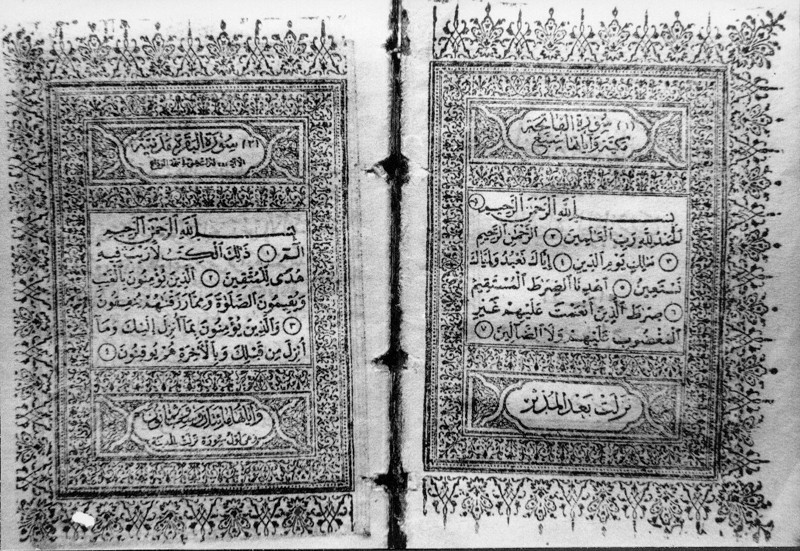 (١) سُورَةُ الفَاتِحَة
مَكِّيَّة وَآيَاتُهَا سَبْع
بِسْمِ ٱللَّهِ ٱلرَّحْمَٰنِ ٱلرَّحِيمِ ١
ٱلْحَمْدُ لِلَّهِ رَبِّ ٱلْعَٰلَمِينَ ٢ ٱلرَّحْمَٰنِ ٱلرَّحِيمِ
٣ مَٰلِكِ يَوْمِ ٱلدِّينِ ٤ إِيَّاكَ نَعْبُدُ وَإِيَّاكَ
نَسْتَعِينُ ٥ ٱهْدِنَا ٱلصِّرَٰطَ ٱلْمُسْتَقِيمَ
٦ صِرَٰطَ ٱلَّذِينَ أَنْعَمْتَ عَلَيْهِمْ غَيْرِ
ٱلْمَغْضُوبِ عَلَيْهِمْ وَلَا ٱلضَّآلِّينَ ٧
نَزَلَتْ بَعْدَ المدَّثِّر
(٢) سُورَةُ البَقَرَة مَدَنِيَّة
بِسْمِ ٱللَّهِ ٱلرَّحْمَٰنِ ٱلرَّحِيمِ
الٓمٓ ١ ذَٰلِكَ ٱلْكِتَٰبُ لَا رَيْبَ فِيهِ
هُدًى لِّلْمُتَّقِينَ ٢ ٱلَّذِينَ يُؤْمِنُونَ بِٱلْغَيْبِ
وَيُقِيمُونَ ٱلصَّلَوٰةَ وَمِمَّا رَزَقْنَٰهُمْ يُنفِقُونَ
٣ وَٱلَّذِينَ يُؤْمِنُونَ بِمَآ أُنزِلَ إِلَيْكَ وَمَآ
أُنزِلَ مِن قَبْلِكَ وَبِٱلْأٓخِرَةِ هُمْ يُوقِنُونَ ٤
وَآيَاتُهَا مِائتَان وَسِتّ وَثَمَانُون
وَهِيَ أَوَّلُ سُورَة نَزَلَتْ بِالمَدِينَة